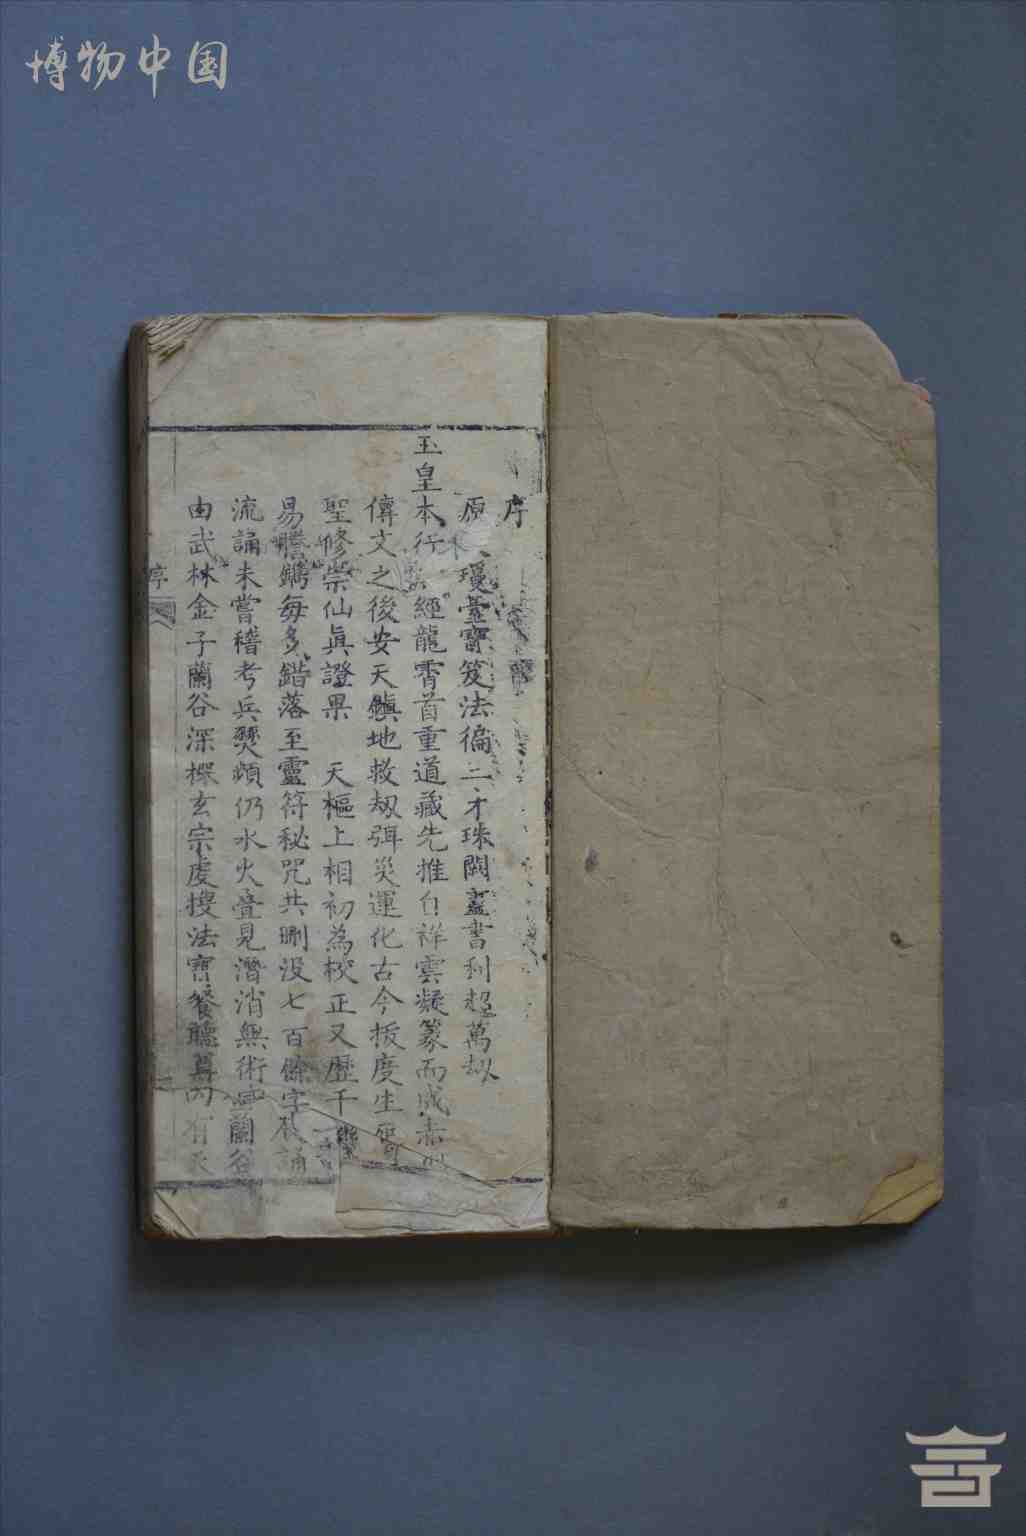 博物中国
序
原 瓊臺寶笈法徧三才珠闕畫書利超萬劫
玉皇本行 經龍霄首重道藏先推自祥雲凝篆而成赤
傳文之後安天鎮地救劫弭災運化古今拔度生
聖修崇仙眞證果 天樞上相初為校正又歷千
易謄鐫每多錯落至靈符秘咒共刪没七百餘字 誦
流誦未嘗稽考兵燹頻仍水火疊見潛消無術 蘭谷
由武林金子蘭谷深探玄宗虔搜法寶 有天
序